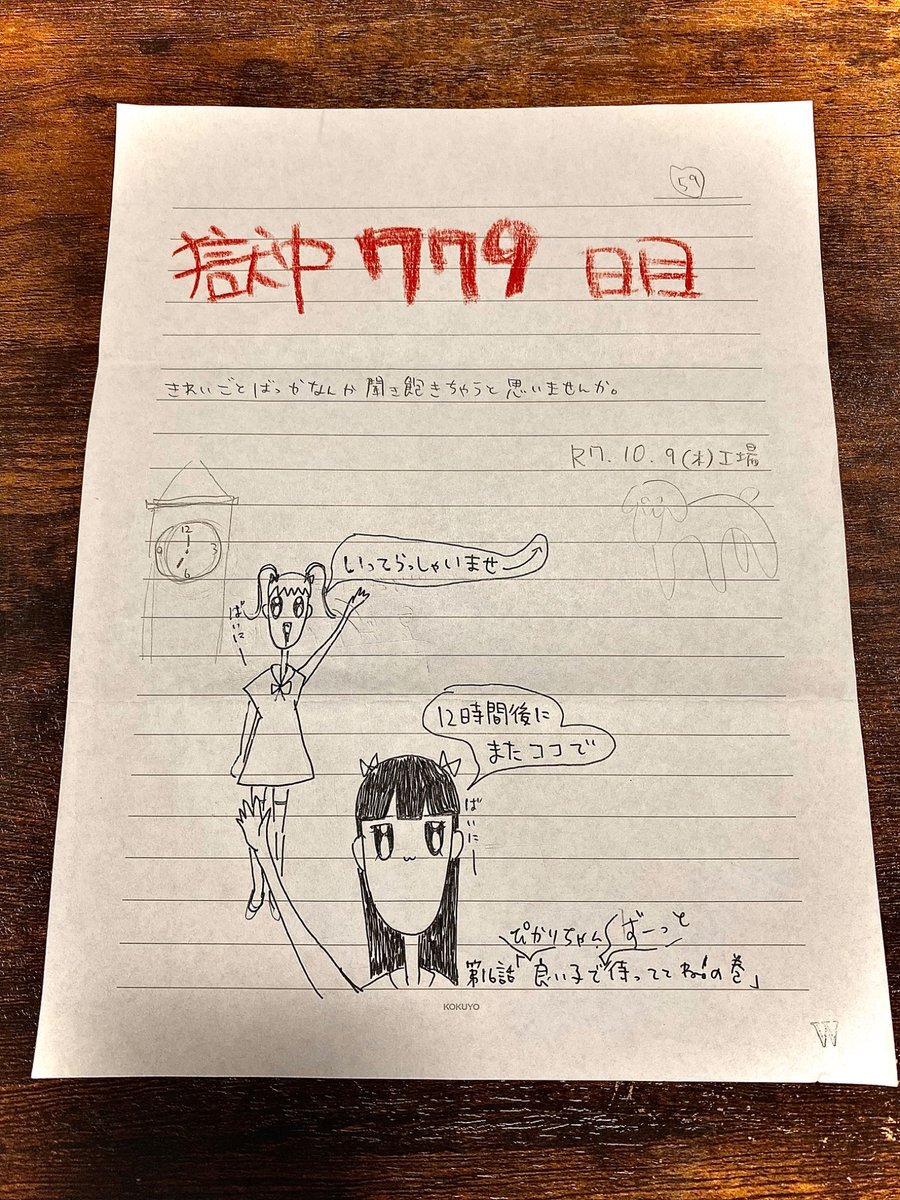 59
獄中 779 日目
きれいごとばっかなんか聞き飽きちゃうと思いませんか。
R7.10.9(木)工場
12
3
6
いってらっしゃいませ
ばいにー
12時間後に
またココで
ばいにー
ぴかりちゃん ずーっと
第16話「良い子で待っててね!の巻」
KOKUYO
W